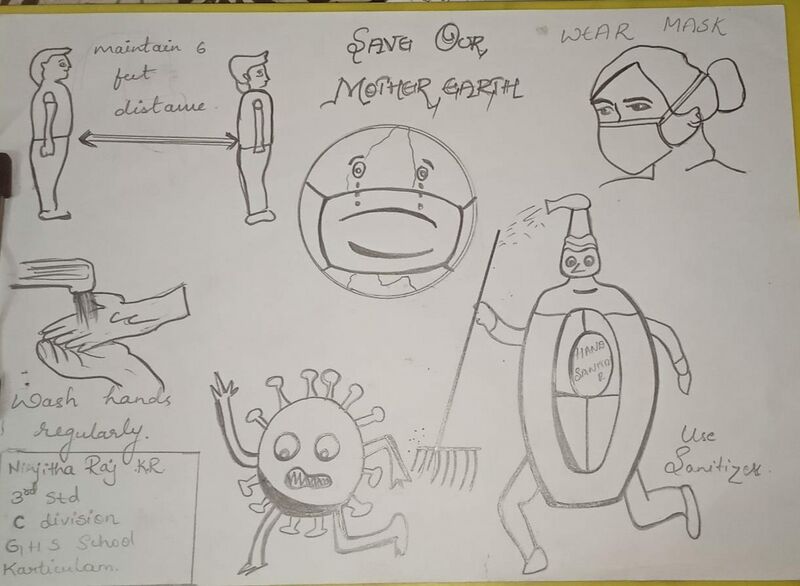 maintain 6
feet
distance.
SAVE OUR
MOTHER EARTH
WEAR MASK
Wash hands
regularly.
HAND
SANITIZE
R
Use
Sanitizer.
Raj KR
3rd Std
C division
GHS School
Karticulam.